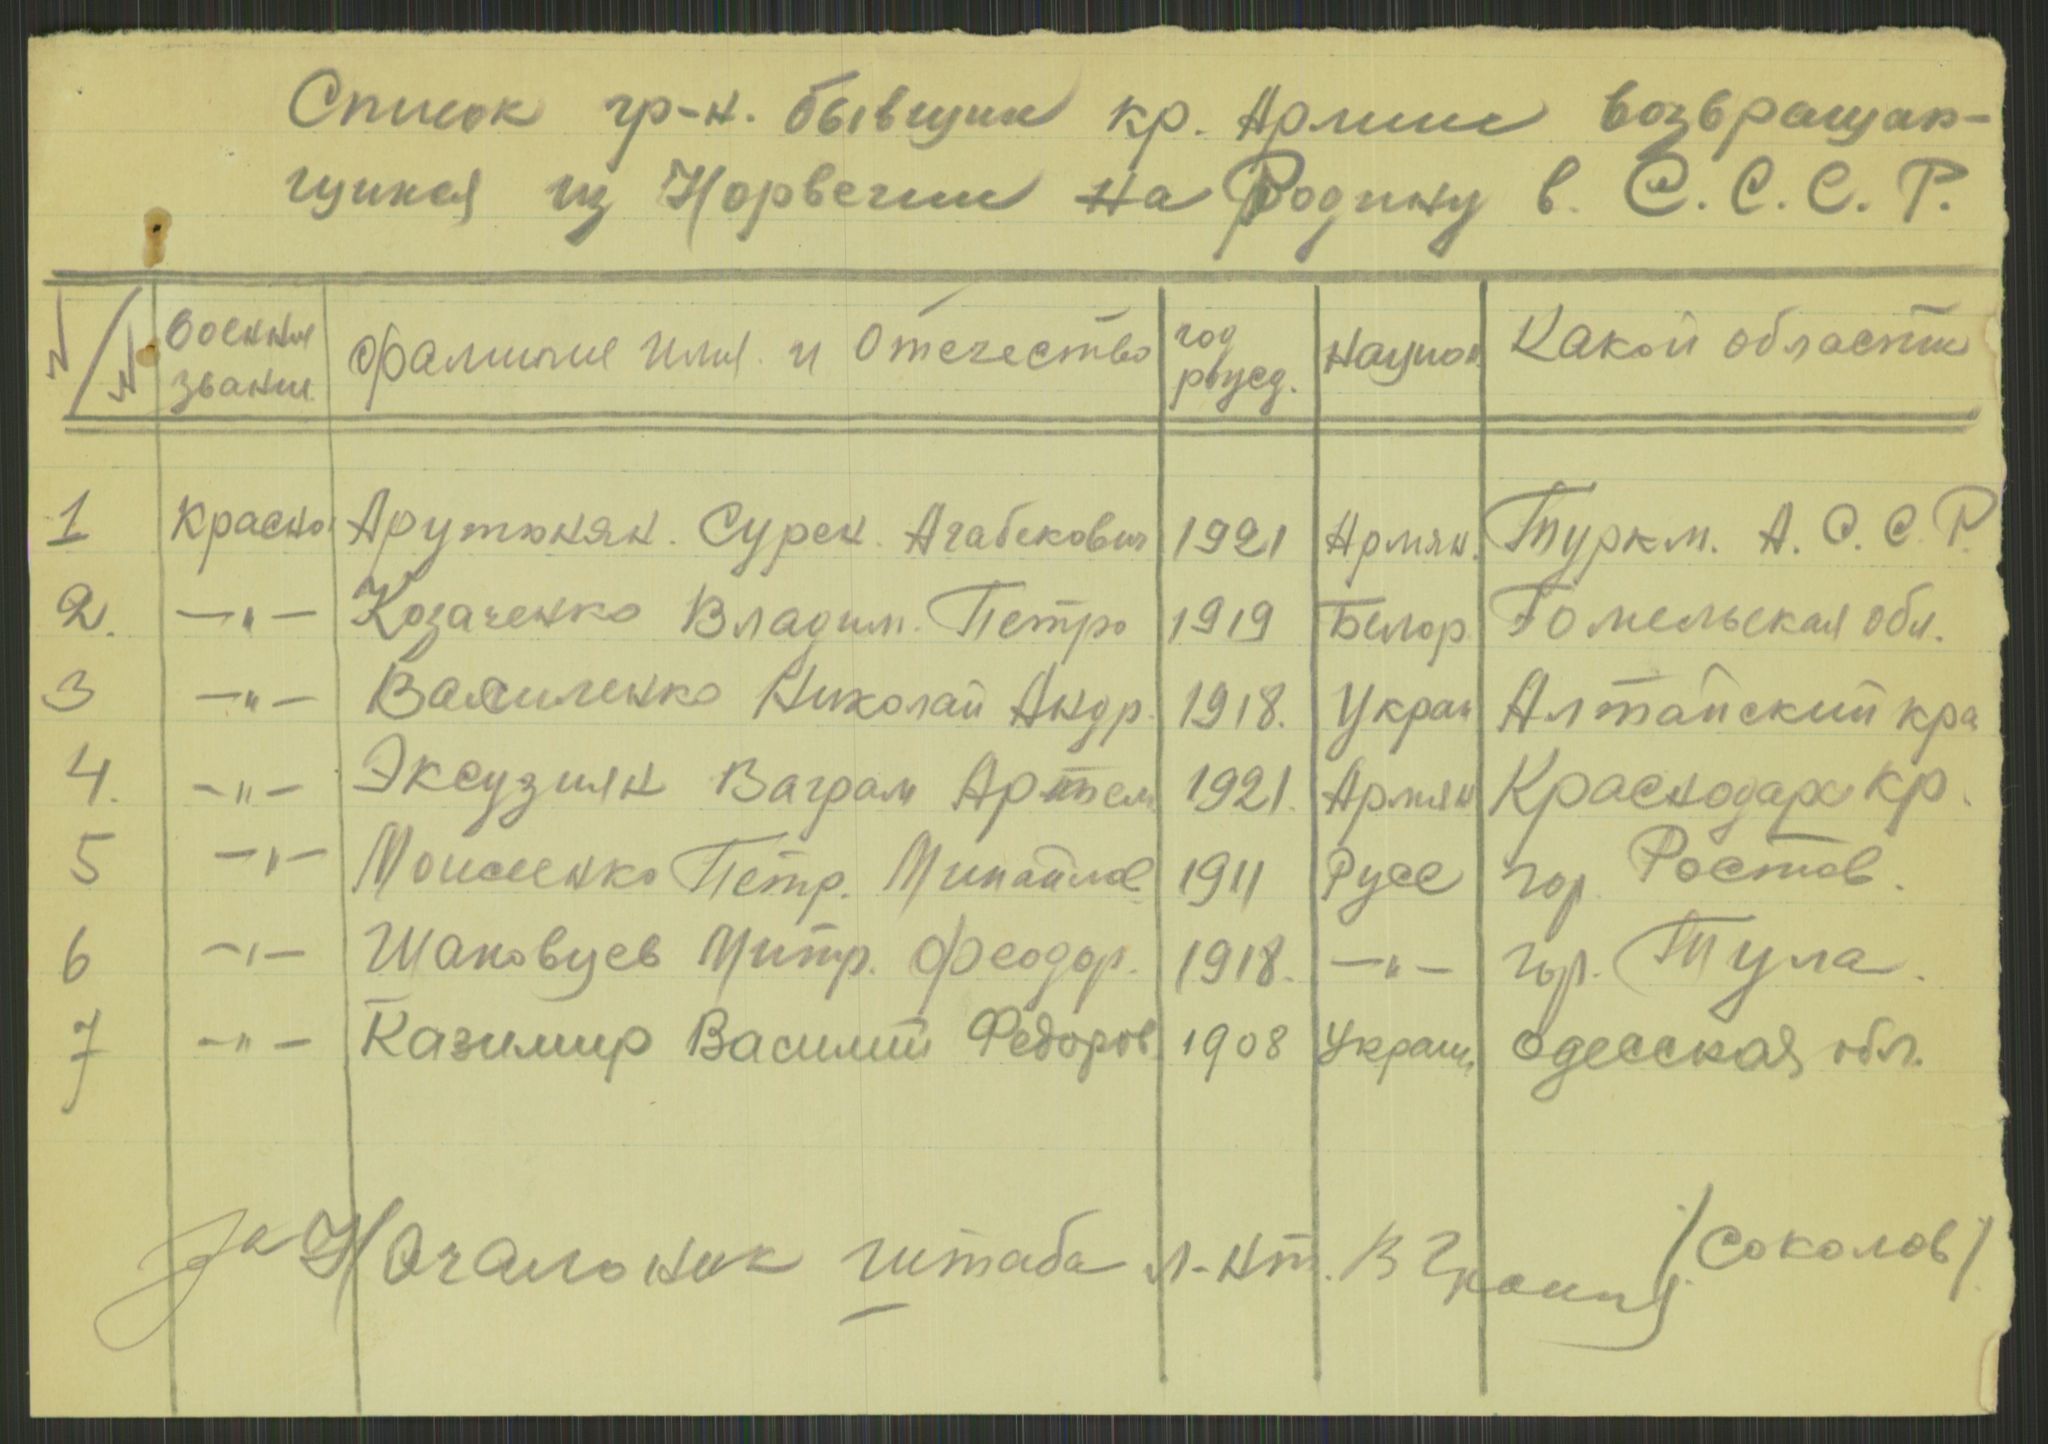 Список гр-н. бывших кр. Армии возвращаю-
щихся из Норвегии на Родину в. С. С. С. Р.
N/N военные звание фамилие имя. и Отечество год рожд. Национ Какой области
1 Красно Арутюнян. Сурен. Агабекович 1921 Армян. Туркм. А. С. С. Р.
2. -"- Козаченко Владим. Петро 1919 Белор. Гомельская обл.
3 -"- Василенко Николай Андр. 1918. Украи Алтайский кра
4. -"- Эксузиян Ваграм Артем 1921. Армян Краснодарс кр.
5 -"- Моисеенко Петр. Михайлов 1911 Русс гор. Ростов.
6 -"- Шаховцев Митр. Феодор. 1918. -"- гор. Тула.
7 -"- Казимир Василий Федоров 1908 Украин Одесская обл.
за Начальник штаба л-нт. /Соколов/